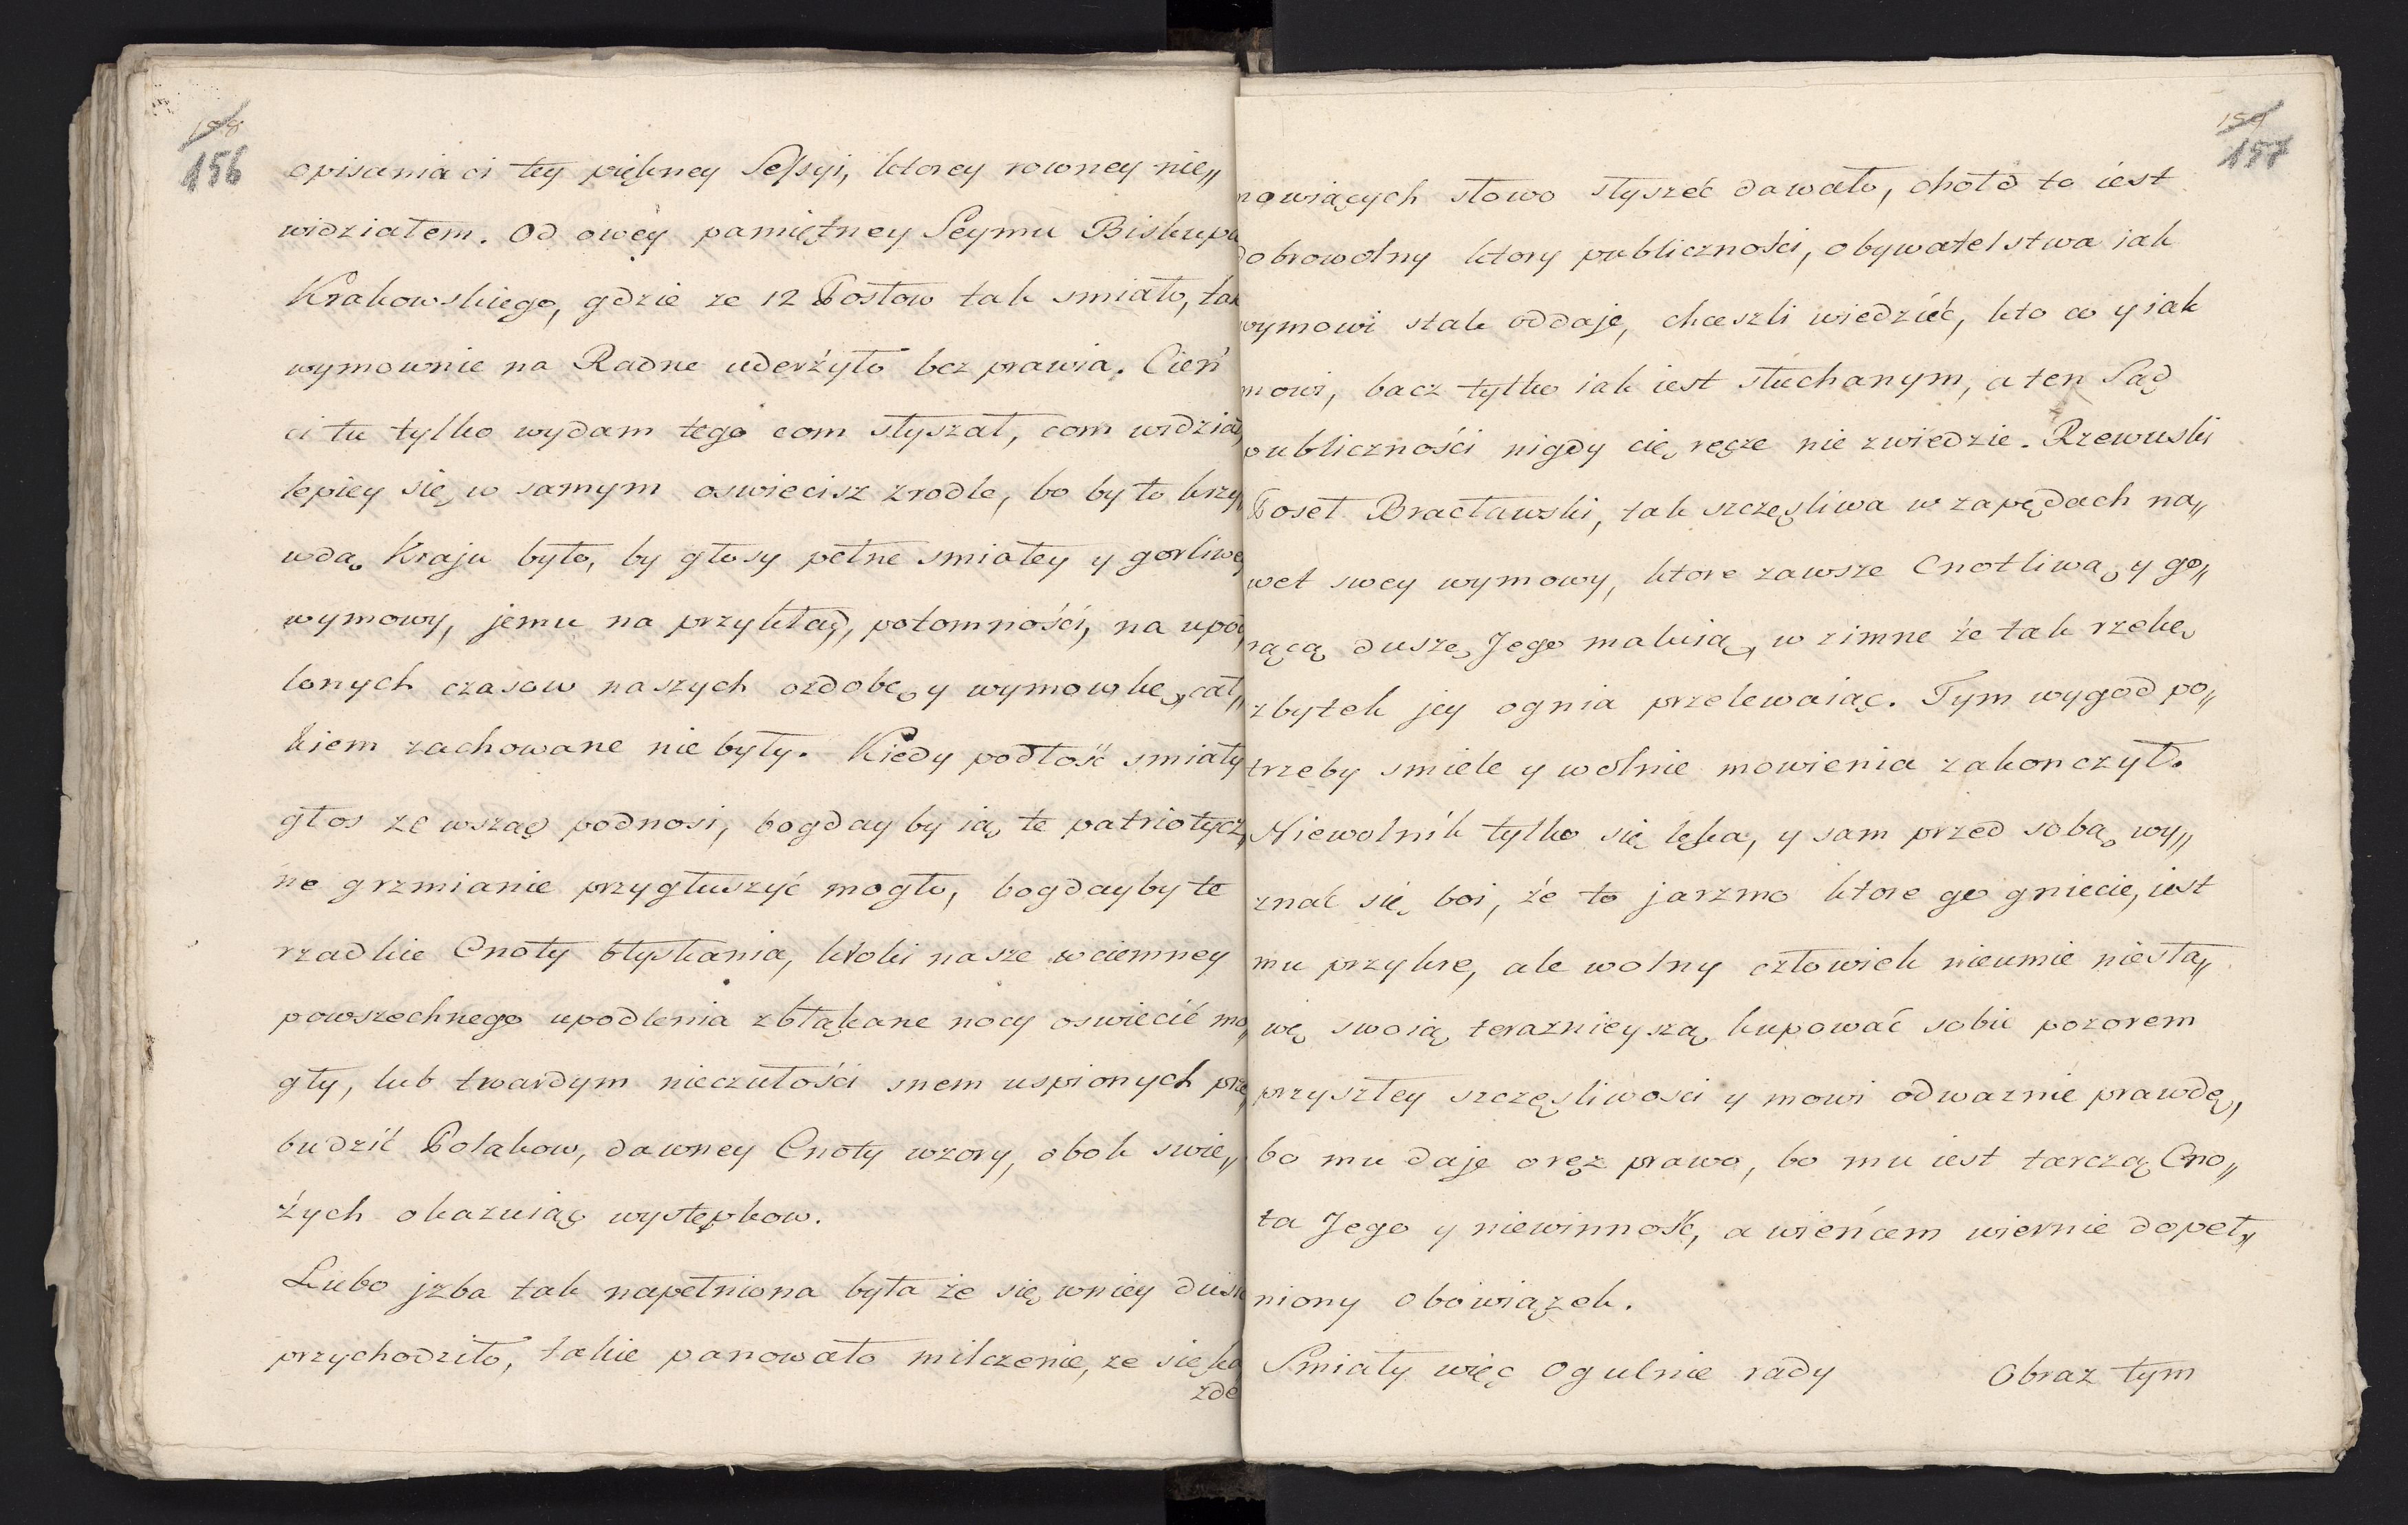 158
156
opisania ci tey piękney Sessyi, ktorey rowney nie„
widziałem. Od owey pamiętney Seymu Biskupa
Krakowskiego, gdzie ze 12 Posłow tak smiało, tak
wymownie na Radne uderżyło bezprawia. Cień
ci tu tylko wydam tego com słyszał, com widział,
lepiey się w samym oswiecisz zrodle, bo by to krzy„
wdą Kraju było, by głosy pełne smiałey y gorliwey
wymowy, jemu na przykład, potomności, na upod„
lonych czasow naszych ozdobę y wymowkę, cał„
kiem zachowane nie były. Kiedy podłość smiały
głos ze wsząd podnosi, bogdayby ią te patriotycz„
ne grzmianie przygłuszyć mogło, bogdayby te
rzadkie Cnoty błyskania, kroki nasze w ciemney
powszechnego upodlenia zbłąkane nocy oswiecić mo„
gły, lub twardym nieczułości snem uspionych prze„
budzić Polakow, dawney Cnoty wzory, obok swie„
żych okazuiąc występkow.
Lubo jzba tak napełniona była że się wniey dusić
przychodziło, takie panowało milczenie, ze się ka
żde
159
157
mowiących słowo słyszeć dawało, chołd to iest
dobrowolny ktory publiczności, obywatelstwa iak
wymowi szak oddaje, chceszli wiedzieć, kto co y iak
mowi, bacz tylko iak iest słuchanym, a ten Sąd
publiczności nigdy cię ręczę nie zwiedzie. Rzewuski
Poseł Bracławski, tak szczęsliwa w zapędach na„
wet swey wymowy, ktore zawsze Cnotliwą y go„
rącą duszę Jego maluią, w zimne że tak rzekę
zbytek jey ognia przelewaiąc. Tym wygod po„
trzeby smiele y wolnie mowienia zakonczył.
Niewolnik tylko się lęka, y sam przed sobą wy„
znać się boi, że to jarzmo ktore go gniecie, iest
mu przykre, ale wolny człowiek nieumie niesła„
wę swoią teraznieyszą kupować sobie pozorem
przyszłey szczęsliwosci y mowi odwaznie prawdę,
bo mu daje oręz prawo, bo mu iest tarczą Cno„
ta Jego y niewinność, a wieńcem wiernie dopeł„
niony obowiązek.
Smiały więc ogulnie rady Obraz tym